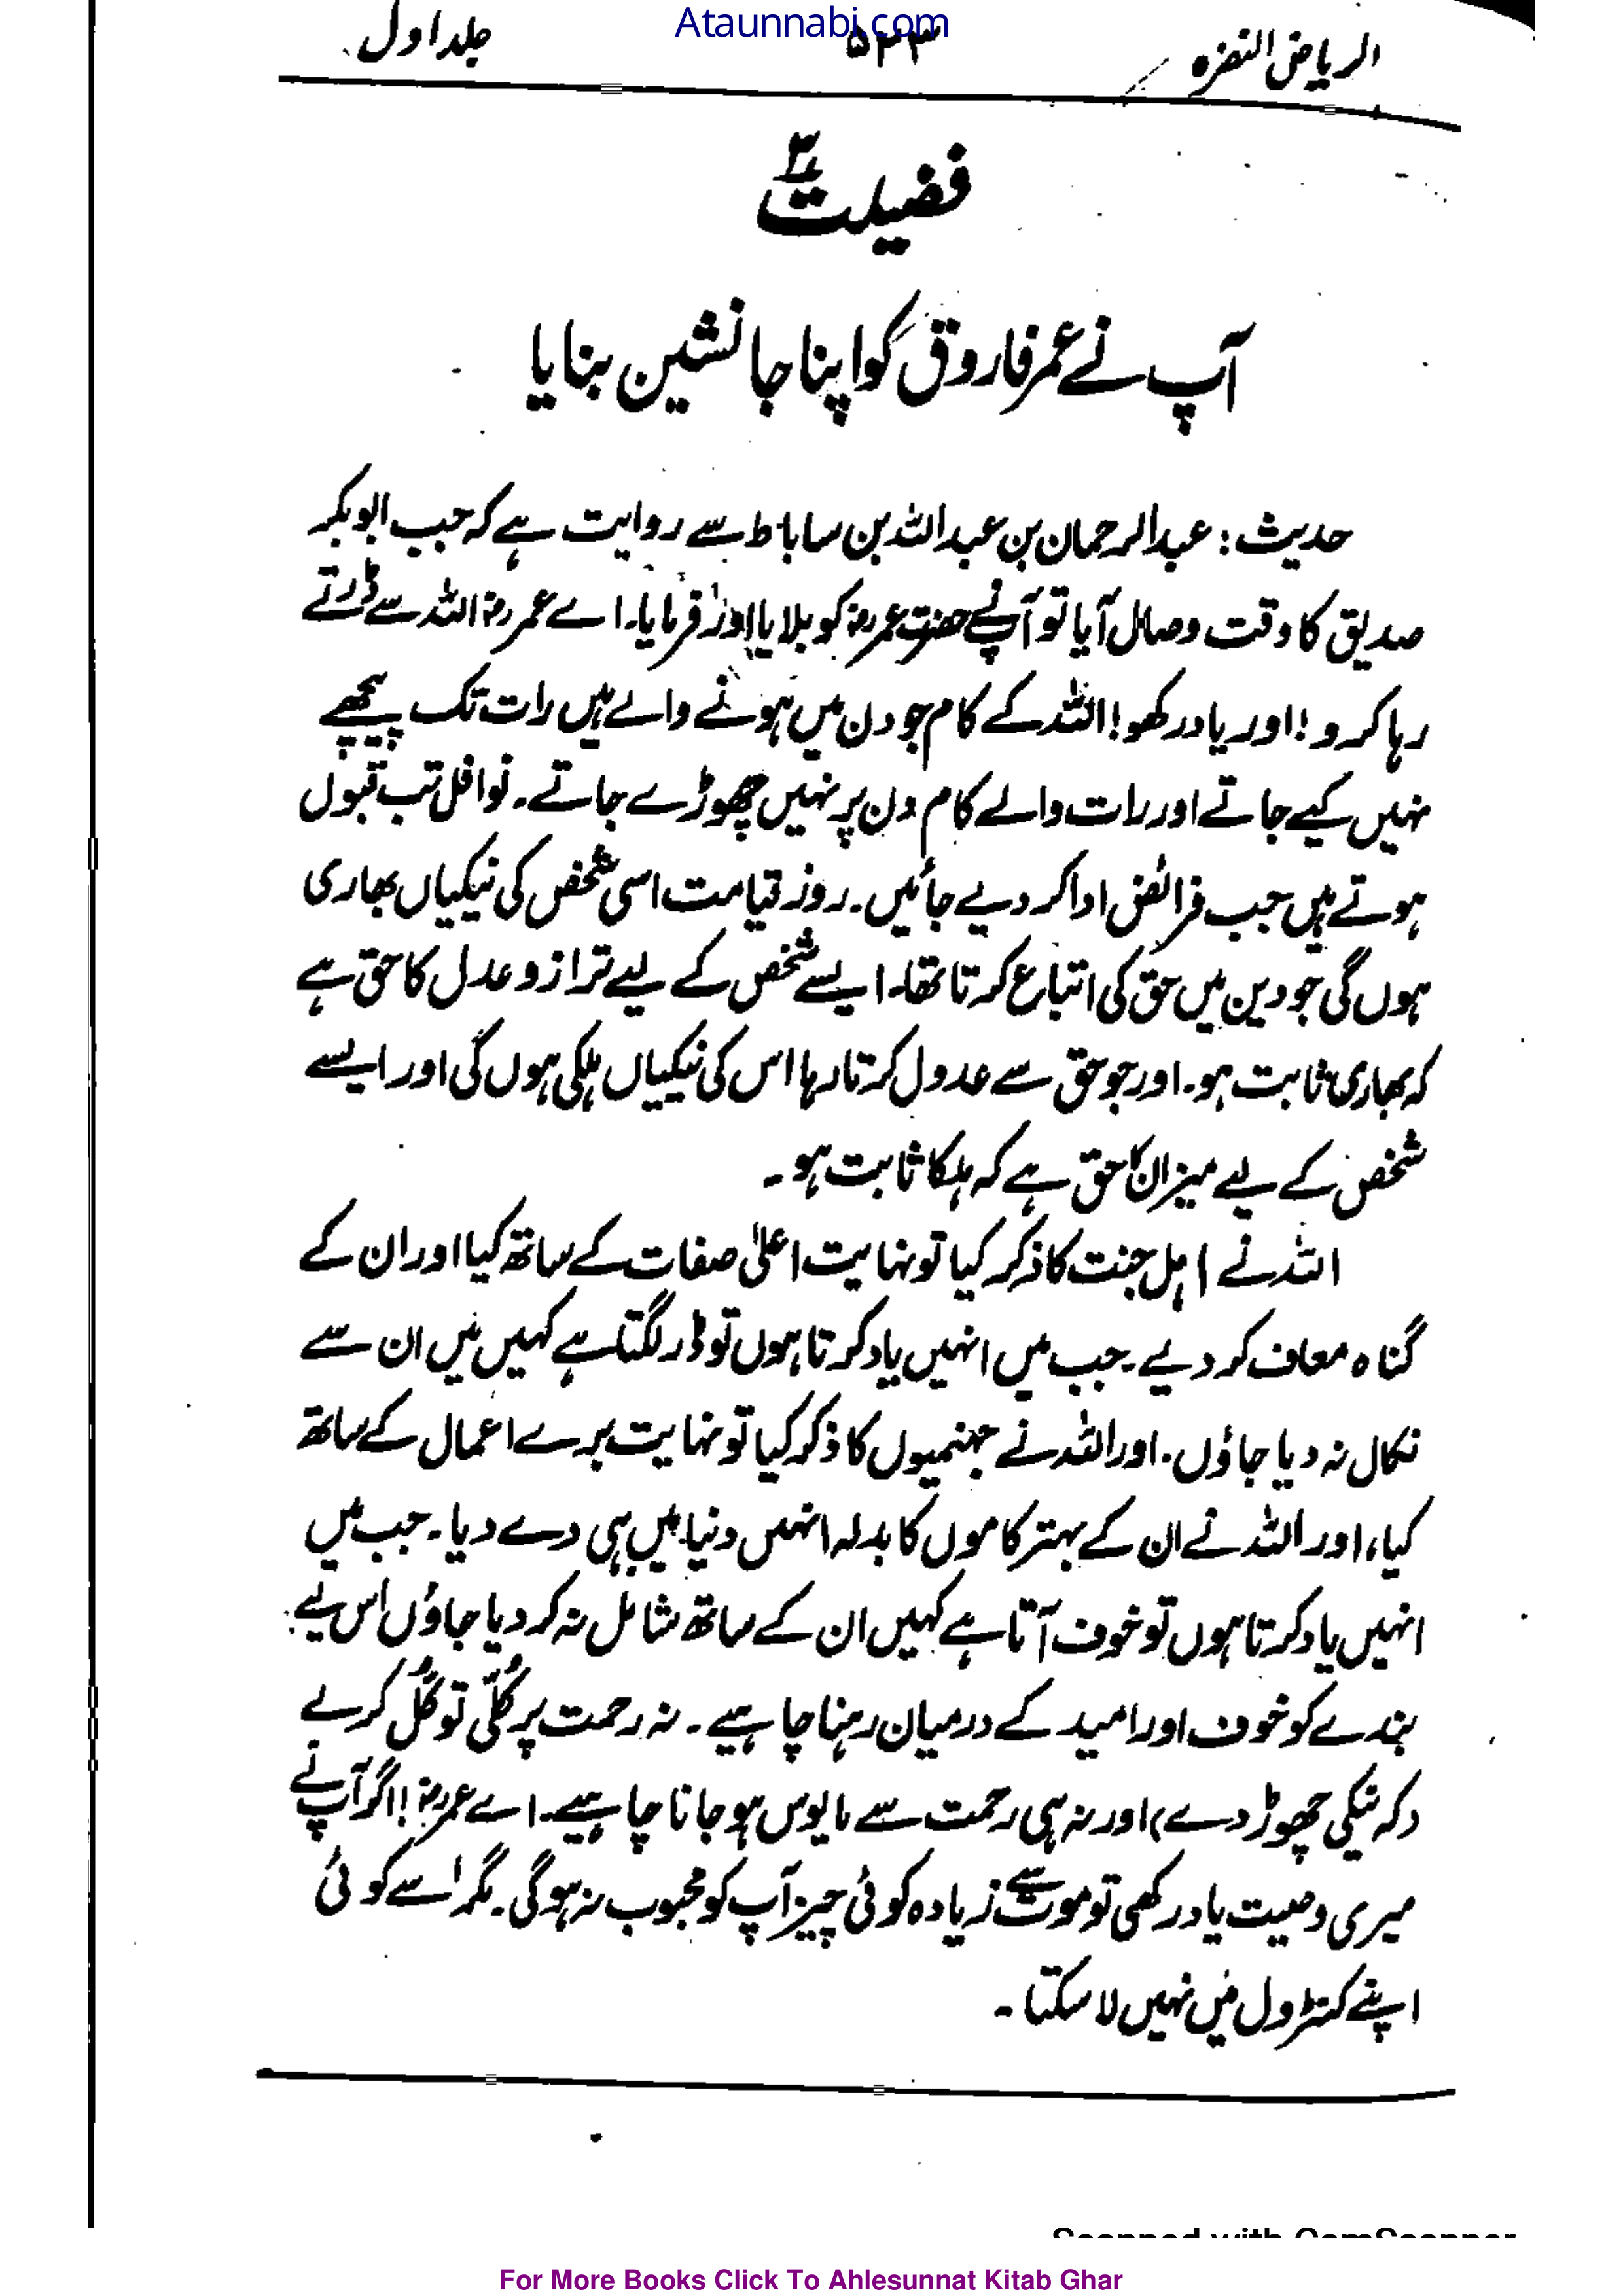 Ataunnabi.com
الریاض النضرہ ۵۲۳ جلد اول
فضیلت
آپ نے عمر فاروق کو اپنا جانشین بنایا
حدیث: عبدالرحمان بن عبداللہ بن ساباط سے روایت ہے کہ جب ابوبکر
صدیق کا وقت وصال آیا تو آپ نے حضرت عمرؓ کو بلایا اور فرمایا۔ اے عمرؓ اللہ سے ڈرتے
رہا کرو! اور یاد رکھو! اللہ کے کام جو دن میں ہونے والے ہیں رات تک پیچھے
نہیں کیے جاتے اور رات والے کام دن پر نہیں چھوڑے جاتے۔ نوافل تب قبول
ہوتے ہیں جب فرائض ادا کر دیے جائیں۔ روز قیامت اسی شخص کی نیکیاں بھاری
ہوں گی جو دین میں حق کی اتباع کرتا تھا۔ ایسے شخص کے لیے ترازو عدل کا حق ہے
کہ بھاری ثابت ہو۔ اور جو حق سے عدول کرتا رہا اس کی نیکیاں ہلکی ہوں گی اور ایسے
شخص کے لیے میزان کا حق ہے کہ ہلکا ثابت ہو۔
اللہ نے اہل جنت کا ذکر کیا تو نہایت اعلیٰ صفات کے ساتھ کیا اور ان کے
گناہ معاف کر دیے۔ جب میں انہیں یاد کرتا ہوں تو ڈر لگتا ہے کہیں میں ان سے
نکال نہ دیا جاؤں۔ اور اللہ نے جہنمیوں کا ذکر کیا تو نہایت برے اعمال کے ساتھ
کیا، اور اللہ نے ان کے بہتر کاموں کا بدلہ انہیں دنیا میں ہی دے دیا۔ جب میں
انہیں یاد کرتا ہوں تو خوف آتا ہے کہیں ان کے ساتھ شامل نہ کر دیا جاؤں اس لیے
بندے کو خوف اور امید کے درمیان رہنا چاہیے۔ نہ رحمت پر کُلّی توکُل کرلے
(کہ نیکی چھوڑ دے) اور نہ ہی رحمت سے مایوس ہو جانا چاہیے۔ اے عمرؓ! اگر آپ نے
میری وصیت یاد رکھی تو موت سے زیادہ کوئی چیز آپ کو محبوب نہ ہوگی۔ مگر اسے کوئی
اپنے کنٹرول میں نہیں لا سکتا۔
Scanned with CamScanner
For More Books Click To Ahlesunnat Kitab Ghar